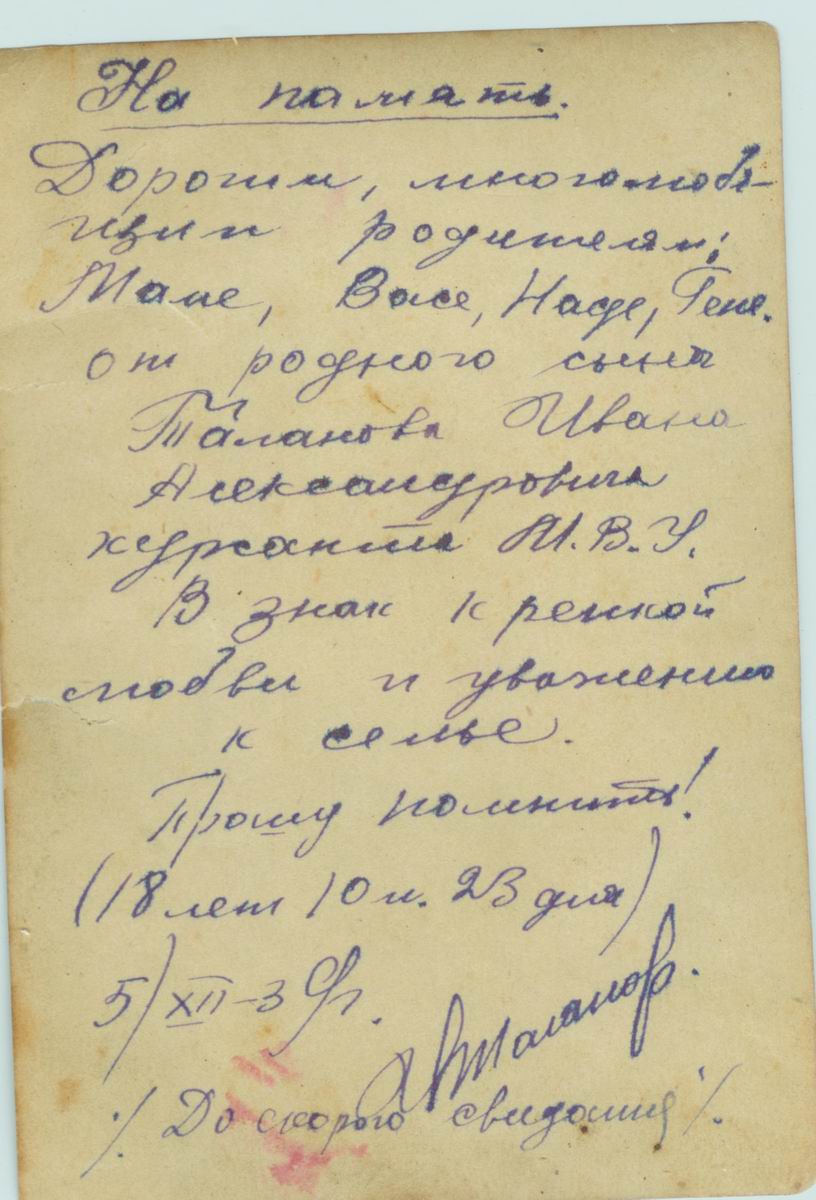 На память.
Дорогим, многолюбя-
щим родителям:
Маме, Васе, Наде, Гене.
от родного сына
Таланова Ивана
Александровича
курсанта М.В.У.
В знак крепкой
любви и уважению
к семье.
Прошу помнить!
(18 лет 10 м. 23 дня)
5/XII-39г.
Таланов.
·/. До скорого свидания ·/.